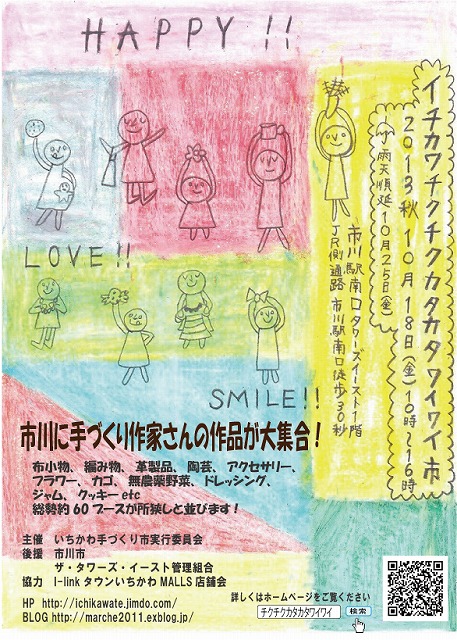 HAPPY!!
イチカワチクチクカタカタワイワイ市
2013秋 10月18日(金)10時〜16時
小雨天順延10月25日(金)
市川駅南口タワーズイースト1階
JR側通路 市川駅南口徒歩30秒
LOVE!!
SMILE!!
市川に手づくり作家さんの作品が大集合!
布小物、編み物、革製品、陶芸、アクセサリー、
フラワー、カゴ、無農薬野菜、ドレッシング、
ジャム、クッキー etc
総勢約60ブースが所狭しと並びます!
主催 いちかわ手づくり市実行委員会
後援 市川市
ザ・タワーズ・イースト管理組合
協力 I-linkタウンいちかわMALLS店舗会
HP http://ichikawate.jimdo.com/
BLOG http://marche2011.exblog.jp/
詳しくはホームページをご覧ください
チクチクカタカタワイワイ 検索